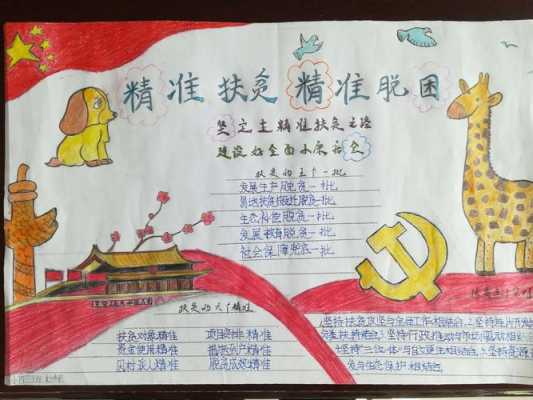 精准扶贫 精准脱困
坚定走精准扶贫之路
建设好全面小康社会
扶贫的五个一批
发展生产脱贫一批
易地扶贫搬迁脱贫一批
生态补偿脱贫一批
发展教育脱贫一批
社会保障 一批
扶贫的六个精准
扶贫对象精准 项目安排精准
资金使用精准 措施到户精准
因村派人精准 脱贫成效精准
坚持扶贫攻坚与全局工作相结合,
相结合 坚持行政推动与市场 相结
坚持"三位一体"与自主 相结合
与生态 护相结合